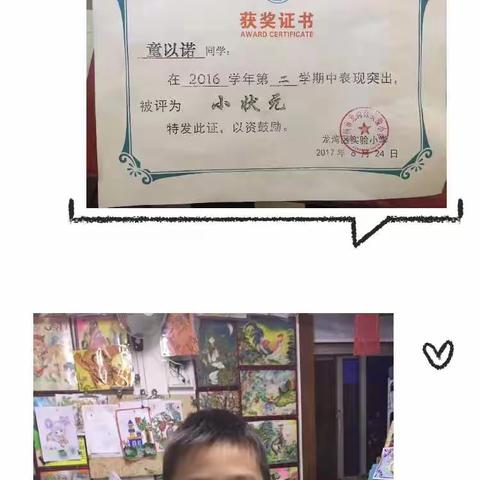 获奖证书
AWARD CERTIFICATE
童以诺 同学:
在 2016 学年第 二 学期中表现突出,
被评为 小状元
特发此证,以资鼓励。
龙湾区实验小学
2017年6月24日